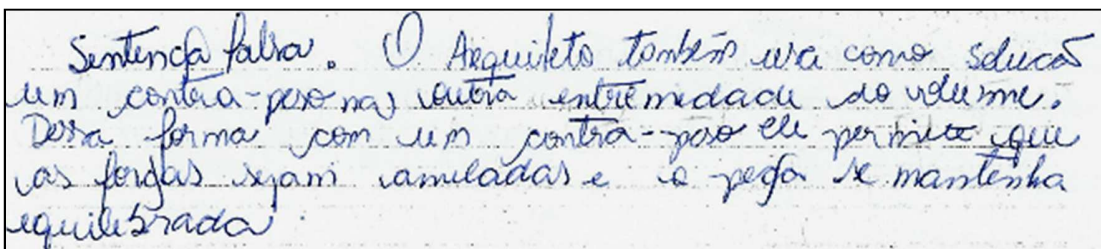 Sentença falsa. O Arquiteto também usa como solucão
um contra-peso nas outra entremedade do volume.
Dessa forma com um contra-peso ele permite que
as forças sejam anuladas e a peça se mantenha
equilibrada